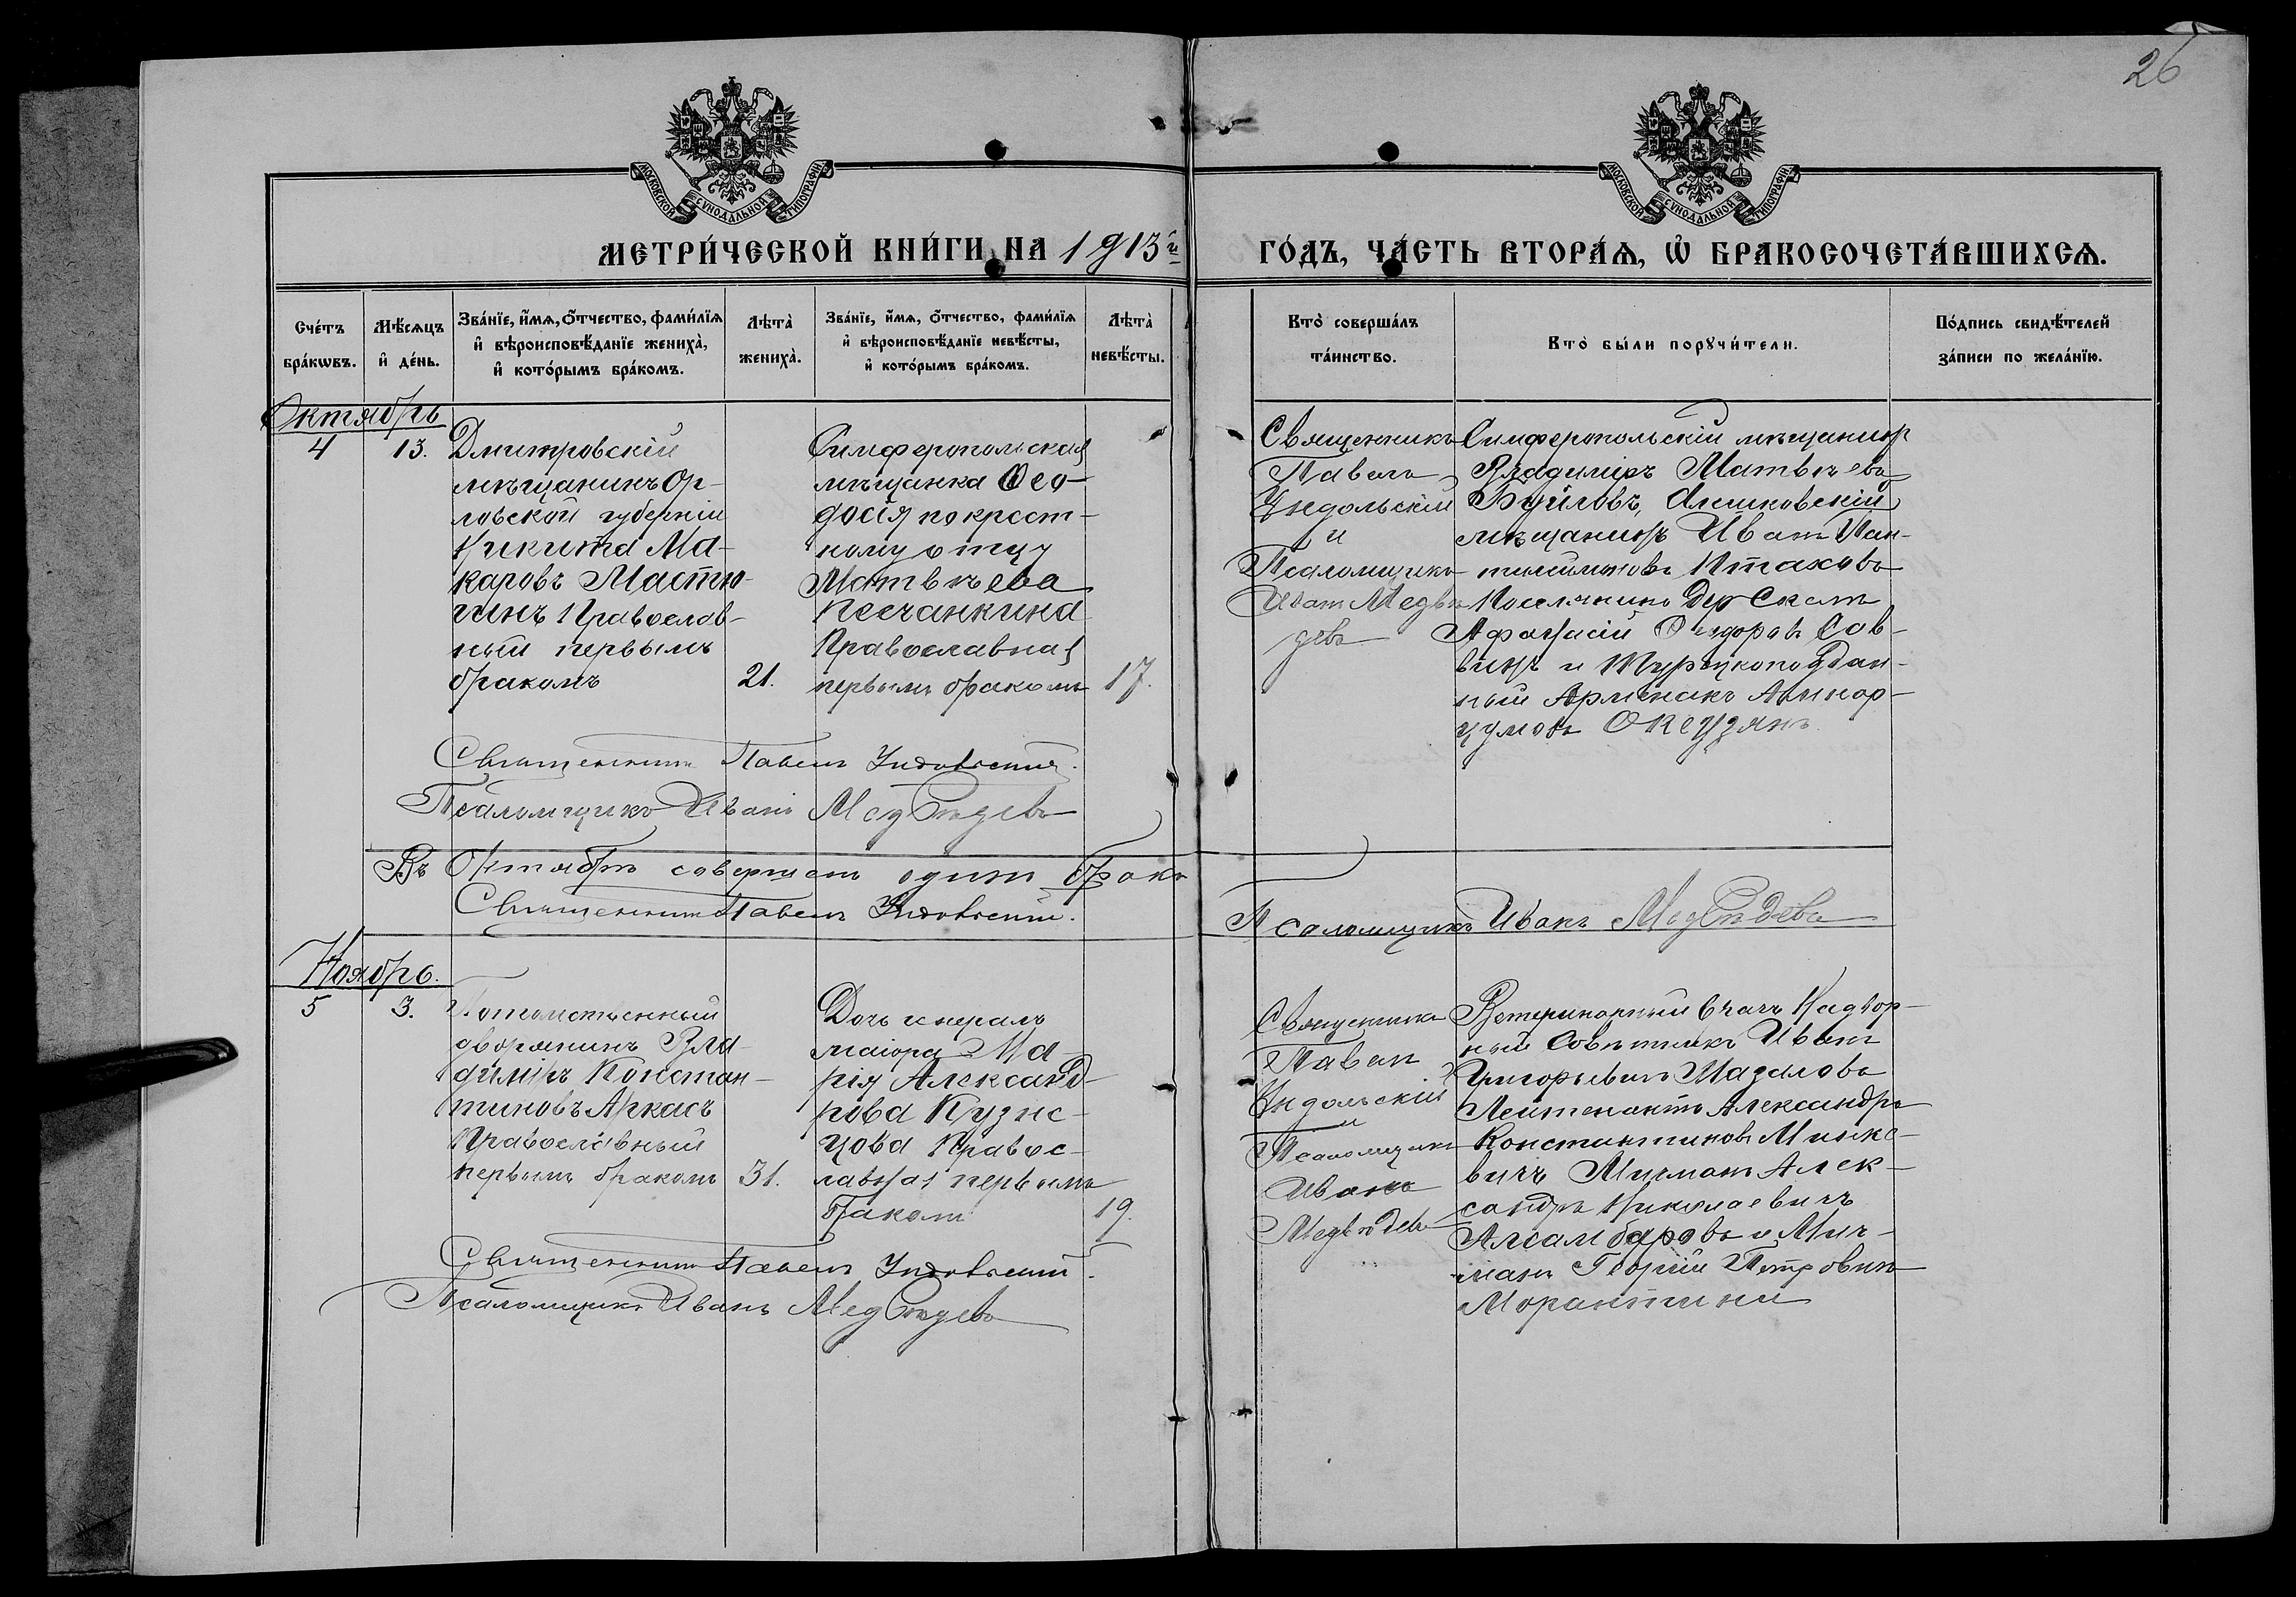 26
МОСКОВСКОЙ СѴНОДАЛЬНОЙ ТИПОГРАФІИ
МОСКОВСКОЙ СѴНОДАЛЬНОЙ ТИПОГРАФІИ
МЕТРИ́ЧЕСКОЙ КНИ́ГИ НА 1913й
ГО́ДЪ, ЧА́СТЬ ВТОРА́Ѧ, Ѽ БРАКОСОЧЕТА́ВШИХСѦ.
Сче́тъ бра́кωвъ.
Мѣ́сѧцъ и҆ де́нь.
Зва́нїе, и҆́мѧ, ѻ҆́тчество, фами́лїѧ и҆ вѣроисповѣ́данїе жениха̀, и҆ кото́рымъ бра́комъ.
Лѣта̀ жениха̀.
Зва́нїе, и҆́мѧ, ѻ҆́тчество, фами́лїѧ и҆ вѣроисповѣ́данїе невѣ́сты, и҆ кото́рымъ бра́комъ.
Лѣта̀ невѣ́сты.
Кто̀ соверша́лъ та́инство.
Кто̀ бы́ли порꙋчи́тели.
По́дпись свидѣ́телей за́писи по жела́нїю.
Октябрь
4
13.
Дмитровскій
мѣщанинъ Ор-
ловской губерніи
Никита Ма-
каровъ Мастю-
гинъ Православ-
ный первымъ
бракомъ
21.
Симферопольская
мѣщанка Ѳео-
досія по крест-
ному отцу
Матвѣева
Песчанкина
Православная
первымъ бракомъ
17.
Священникъ
Павелъ
Ундольскій
и
Псаломщикъ
Иванъ Медвѣ-
девъ
Симферопольскій мѣщанинъ
Владиміръ Матвѣевъ
Буйловъ, Алешковскій
мѣщанинъ Иванъ Пан-
телимоновъ
Поселянинъ дер
Афанасій Ѳедоровъ Сав-
винъ и Турецкоподдан-
ный Арменакъ
Священникъ Павелъ Ундольскій.
Псаломщикъ Иванъ Медвѣдевъ
Въ Октябрѣ совершенъ одинъ бракъ
Священникъ Павелъ Ундольскій.
Псаломщикъ Иванъ Медвѣдевъ
Ноябрь.
5
3.
Потомственный
дворянинъ Вла-
диміръ Констан-
тиновъ Аркасъ
Православный
первымъ бракомъ
31.
Дочь генералъ
маіора Ма-
рія Александ-
рова Кузне-
цова Правос-
лавная первымъ
бракомъ
19.
Священникъ
Павелъ
Ундольскій
и
Псаломщикъ
Иванъ
Медвѣдевъ
Ветеринарный врачъ Надвор-
ный Совѣтникъ Иванъ
Григорьевичъ Мазаловъ
Лейтенантъ Александръ
Константиновъ
вичъ Мичманъ Алек-
сандръ Николаевичъ
Алсамбаровъ и Мич-
манъ Георгій Петровичъ
Морантини
Священникъ Павелъ Ундольскій.
Псаломщикъ Иванъ Медвѣдевъ